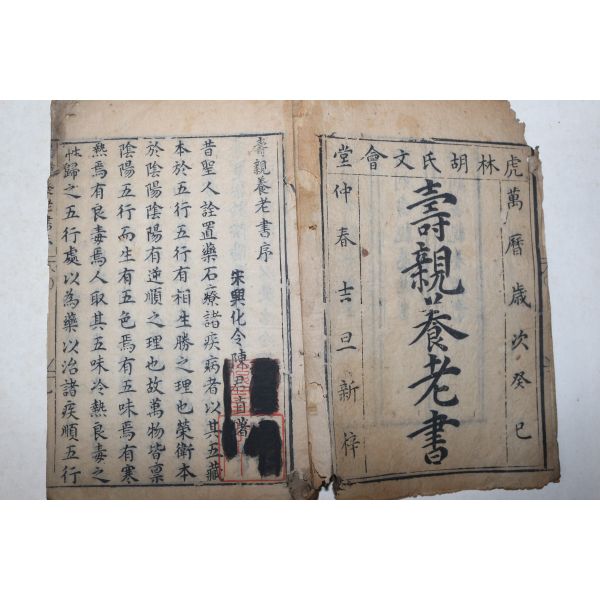 虎林胡氏文會堂
萬曆歲次癸巳
壽親養老書
仲春吉旦新梓
壽親養老書序
宋興化令陳君直譔
昔聖人詮置藥石療諸疾病者以其五藏
本於五行五行有相生勝之理也榮衛本
於陰陽陰陽有逆順之理也故萬物皆禀
陰陽五行而生有五色焉有五味焉有寒
熱焉有良毒焉人取其五味冷熱良毒之
性歸之五行處以為藥以治諸疾順五行